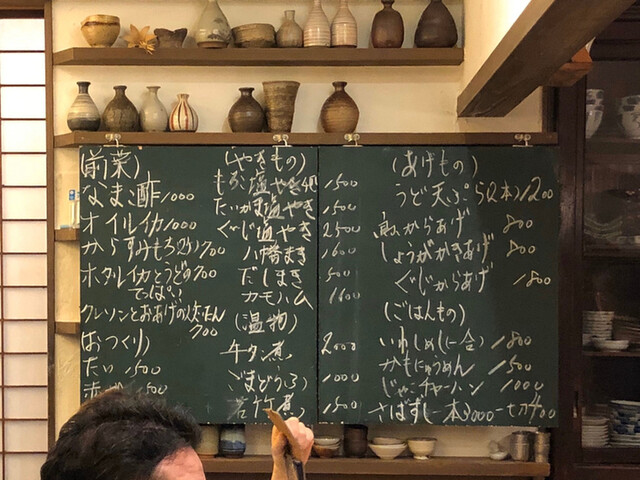 (前菜)
なまこ酢 1000
オイルイカ 1000
からすみもち(2切) 700
ホタルイカとうどの 700
てっぱい
クレソンとおあげの
700
(おつくり)
たい 1500
赤 1500
(やきもの)
塩やき 1500
たいかま塩やき 1500
ぐじ塩やき 2500
八幡まき 1600
だしまき 500
カモハム 1600
(温物)
牛タン煮 2000
ごまどうふ 1000
若竹煮 1500
(あげもの)
うど天ぷら(2本) 1200
からあげ 800
しょうがかきあげ 800
ぐじからあげ 1800
(ごはんもの)
いわしめし(一合) 1800
かもにゅうめん 1500
じゃこチャーハン 1000
さばずし一本 3000